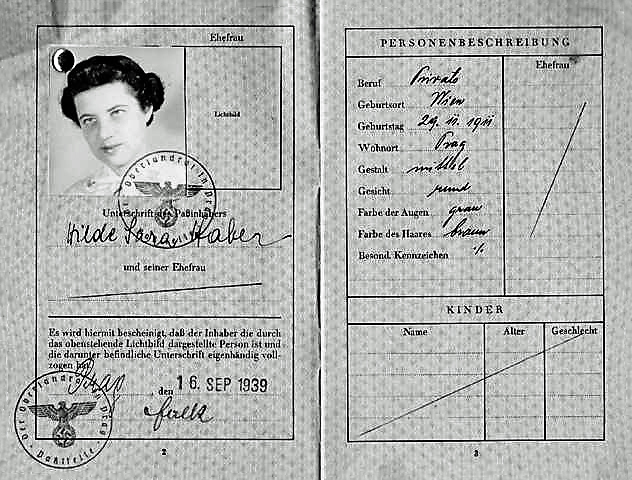 Ehefrau
Lichtbild
Der Oberlandrat in Prag
Unterschrift des Paßinhabers
Hilde Sara Haber
und seiner Ehefrau
Es wird hiermit bescheinigt, daß der Inhaber die durch
das obenstehende Lichtbild dargestellte Person ist und
die darunter befindliche Unterschrift eigenhändig voll-
zogen hat.
Prag, den 16. SEP 1939
Der Oberlandrat in Prag
Paßstelle
2
PERSONENBESCHREIBUNG
Ehefrau
Beruf Private
Geburtsort Wien
Geburtstag 29. II. 1911
Wohnort Prag
Gestalt mittel
Gesicht rund
Farbe der Augen grau
Farbe des Haares braun
Besond. Kennzeichen %
KINDER
Name Alter Geschlecht
3